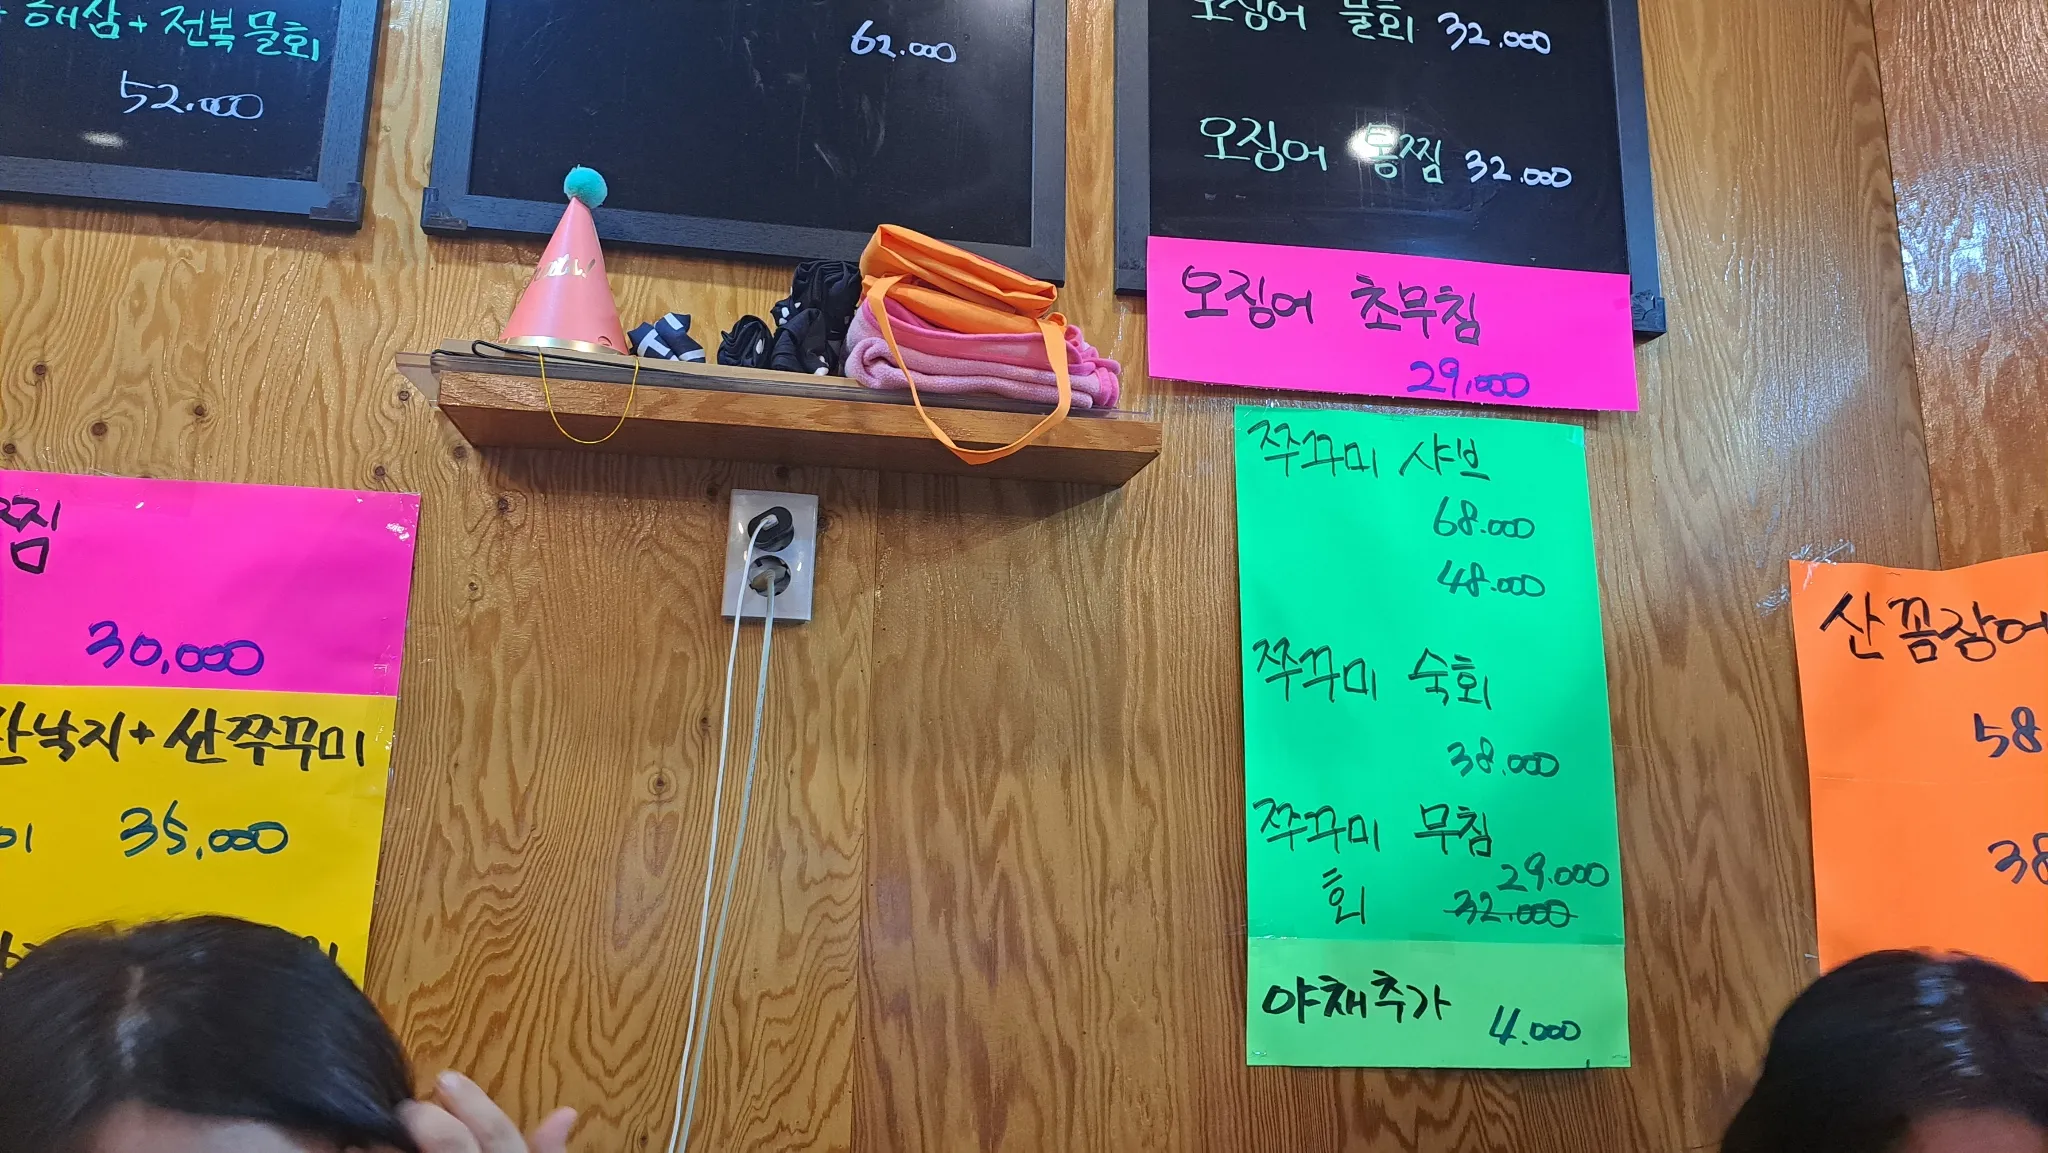 해삼+전복물회
52.000
62.000
오징어 물회 32.000
오징어 통찜 32.000
오징어 초무침
29,000
쭈꾸미 샤브
68.000
48.000
쭈꾸미 숙회
38.000
쭈꾸미 무침
29.000
회 32.000
야채추가 4.000
30,000
산낙지+산쭈꾸미
35,000
산꼼장어
58.
38